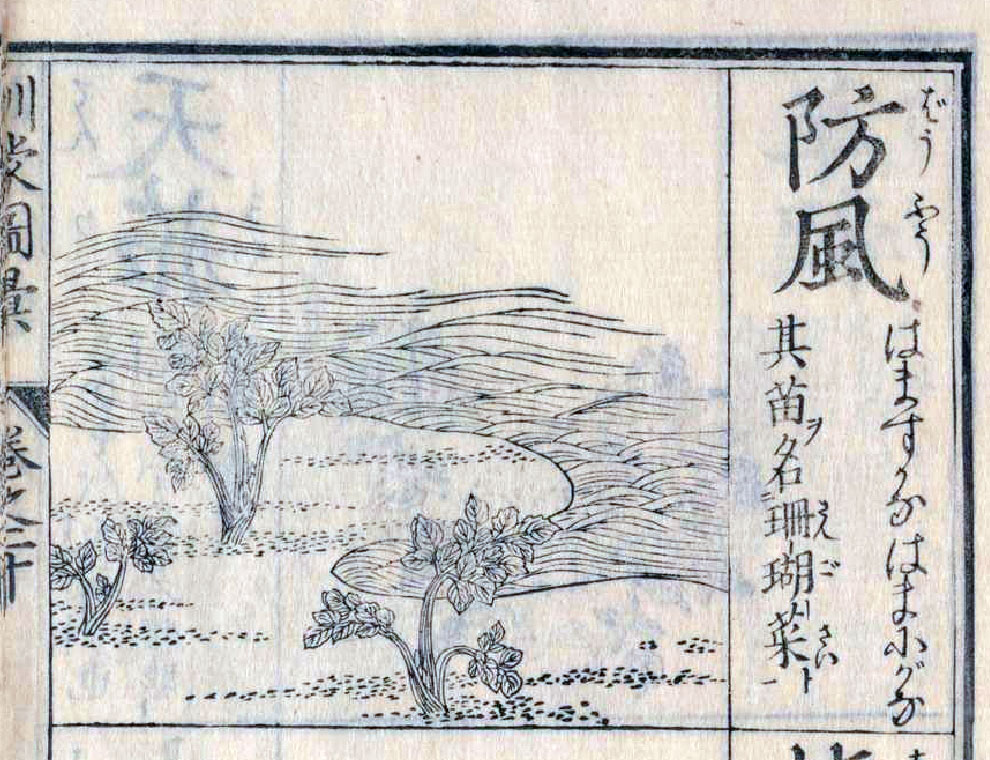 防風
ばう ふう
はますがな はまにがな
其苗ヲ名珊瑚菜ト
さんごさい
訓蒙圖彙
巻之二十